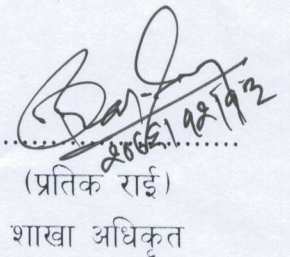 २०७६।१२।१३
(प्रतिक राई)
शाखा अधिकृत